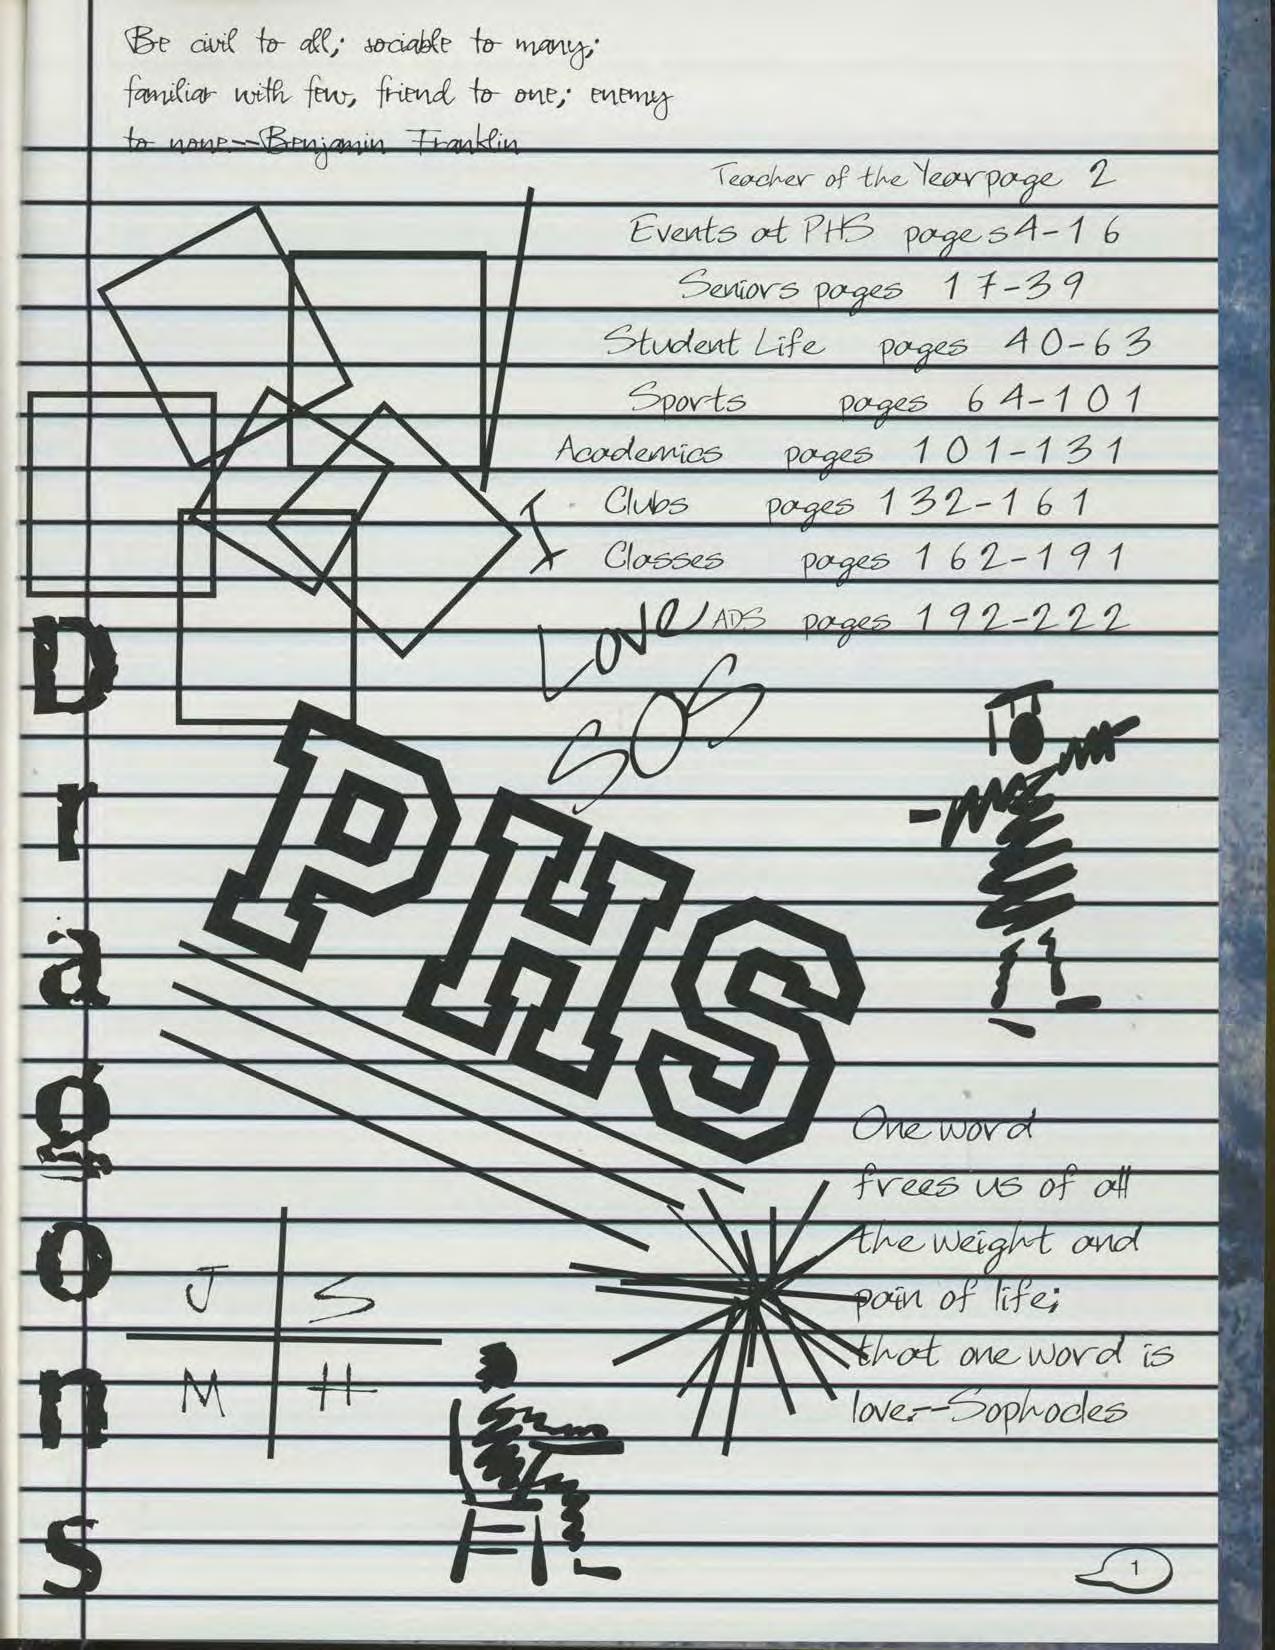 Be civil to all; sociable to many;
familiar with few, friend to one; enemy
to none--Benjamin Franklin
Teacher of the Year page 2
Events at PHS pages 4-16
Seniors pages 17-39
Student Life pages 40-63
Sports pages 64-101
Academics pages 101-131
Clubs pages 132-161
Classes pages 162-191
ADS pages 192-222
I
Love
SOS
Dragons
PHS
One word
frees us of all
the weight and
pain of life;
that one word is
love.--Sophocles
J S
M H
1